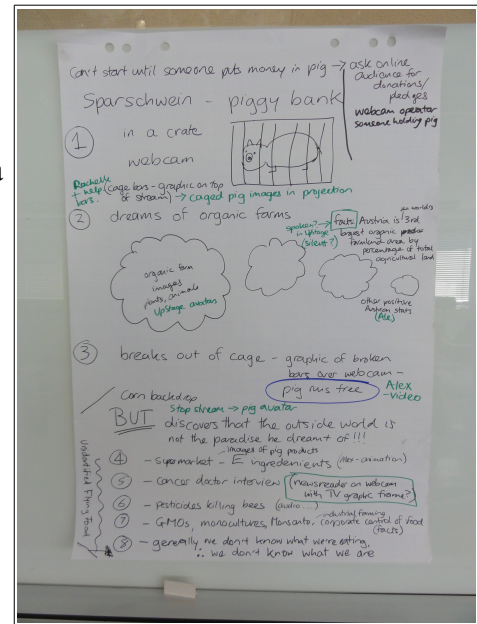 Can't start until someone puts money in pig → ask online
audience for
donations/
pledges
webcam operator
someone holding pig
Sparschwein - piggy bank
① in a crate
webcam
Rachelle
+ help (cage bars - graphic on top
bars. of stream) → caged pig images in projection
② dreams of organic farms
spoken? →
in UpStage
(silent?)
facts Austria is the world's 3rd
largest organic
farmland area by
percentage of total
agricultural land
organic farm
images
plants, animals
UpStage avatars
other positive
Austrian stats
(Alex)
③ breaks out of cage - graphic of broken
bars over webcam -
pig runs free
Alex
-video
Corn backdrop
Stop stream → pig avatar
BUT discovers that the outside world is
not the paradise he dreamt of !!!
images of pig products
④ - supermarket - E ingredenients (Alex-animation)
⑤ - cancer doctor interview (newsreader on webcam
with TV graphic frame?)
⑥ - pesticides killing bees (audio...)
industrial farming
⑦ - GMOs, monocultures, Monsanto, corporate control of food
(facts)
⑧ - generally we don't know what we're eating,
∴ we don't know what we are
Unidentified Flying Food